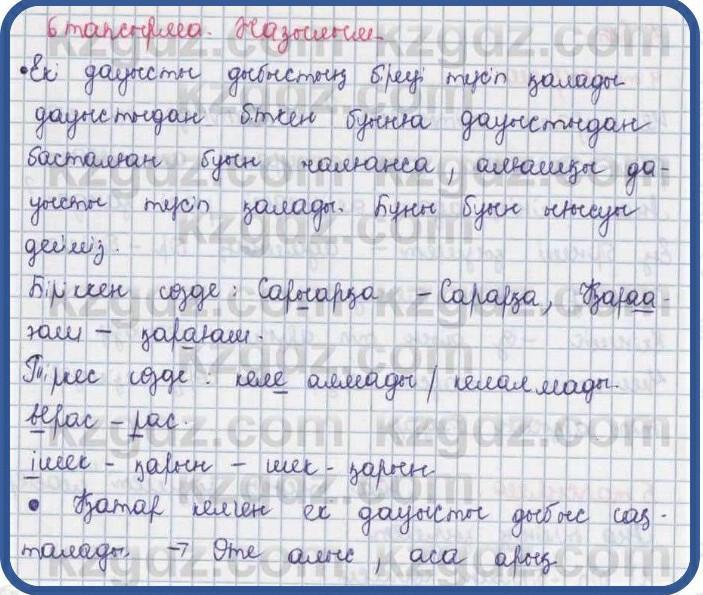 6 тапсырма. Жазылым.
• Екі дауысты дыбыстың біреуі түсіп қалады
дауыстыдан біткен буынға дауыстыдан
басталған буын жалғанса, алғашқы да-
уысты түсіп қалады. Бұны буын ығысуы
дейміз.
Біріккен сөзде: Сарыарқа – Сарарқа, Қараа-
ғаш – қарағаш.
Тіркес сөзде: келе алмады / келалмады.
ырас – рас.
ішек - қарын – шек - қарын
• Қатар келген екі дауысты дыбыс сақ-
талады. → Өте алыс, аса арық
kzgdz.com